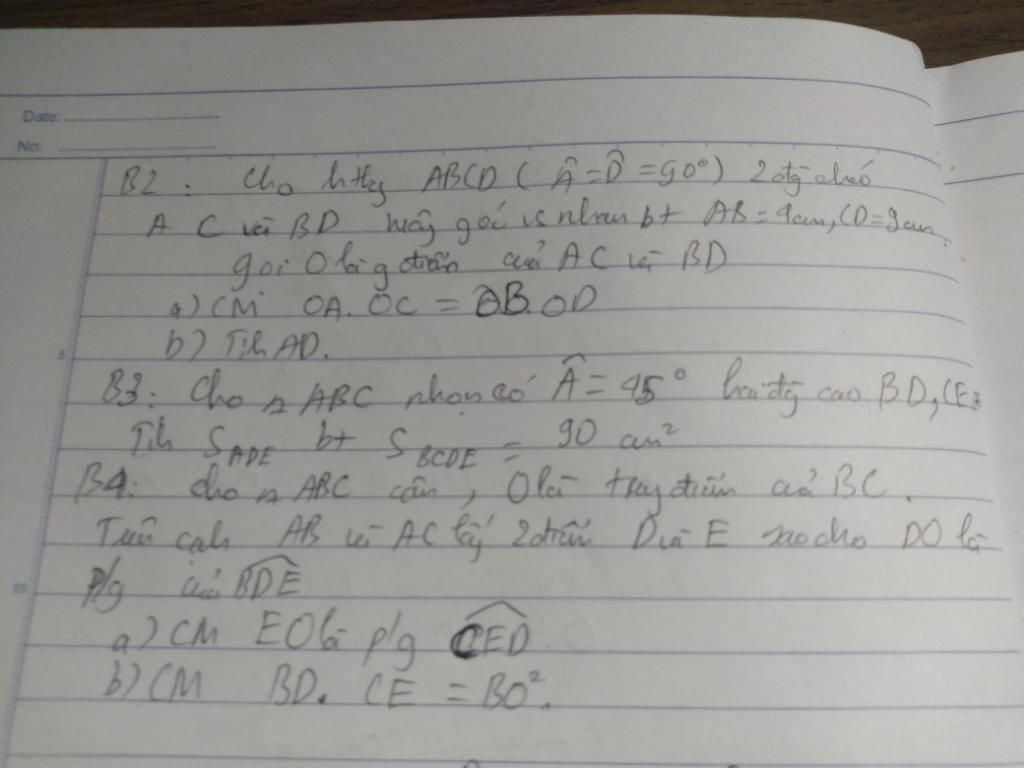 Date:
No:
B2: Cho hthg ABCD ( Â = D̂ = 90°) 2 đg chéo
AC và BD vuông góc vs nhau bt AB = 4cm, CD = 9cm.
gọi O là g điểm của AC và BD
a) CM OA. OC = OB. OD
b) Tíh AD.
5
B3: Cho △ ABC nhọn có Â = 45° hai đg cao BD, CE
Tíh S_ADE bt S_BCDE = 90 cm²
B4: Cho △ ABC cân, O là trug điểm của BC.
Trên cạh AB và AC lấy 2 điểm D và E sao cho DO là
10
p/g của BDE
a) CM EO là p/g CED
b) CM BD. CE = BO².